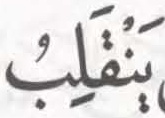 يَنْقَلِبُ